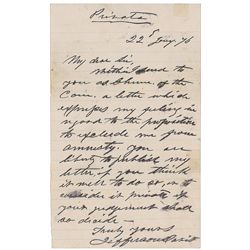 Private
22d Jany. 76
My dear Sir,
Within I send to
you as Chmn. of the
Com. a letter which
expresses my policy in
regard to the proposition
to exclude me from
amnesty. You are
liberty to publish my
letter, if you think
it well to do so, or to
consider it private if
your judgement shall
so decide —
Truly yours
Jefferson Davis